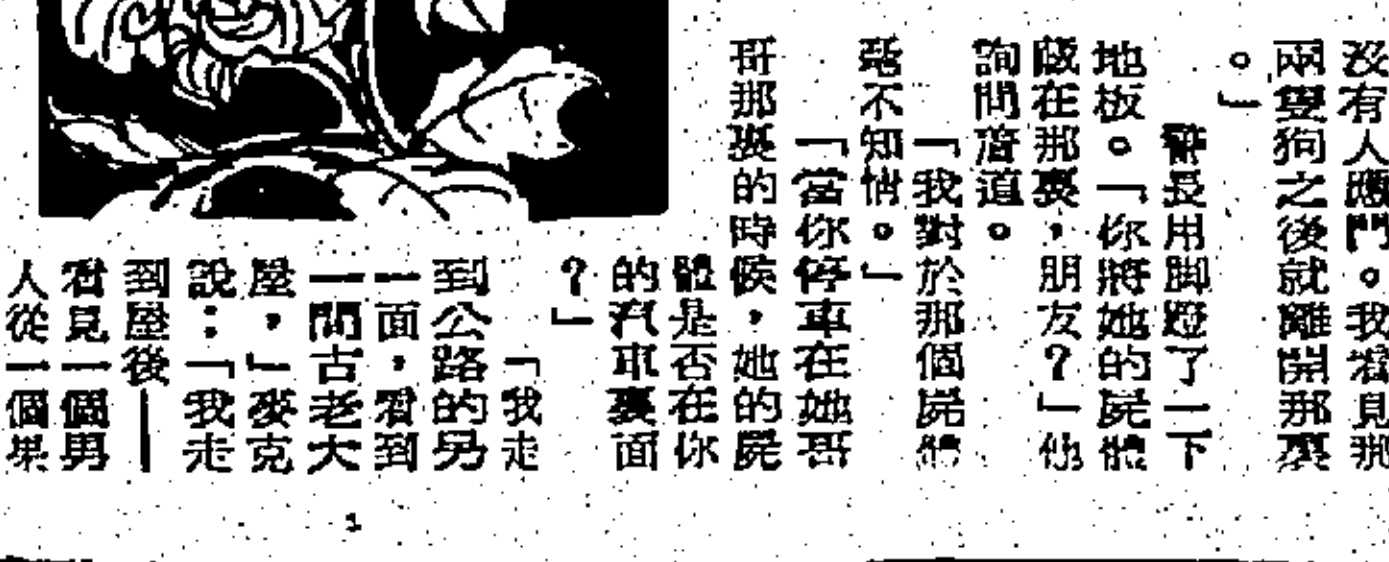 没有人應門。我看見那
兩隻狗之後就離開那裏
。」
警長用脚蹬了一下
地板。「你將她的屍體
藏在那裏,朋友?」他
詢問着道。
「我對於那個屍體
毫不知情。」
「當你停車在她哥
哥那裏的時候,她的屍
體是否在你
的汽車裏面
?」
「我走
到公路的另
一面,看到
一間古老大
屋,」麥克
說:「我走
到屋後——
看見一個男
人從一個果